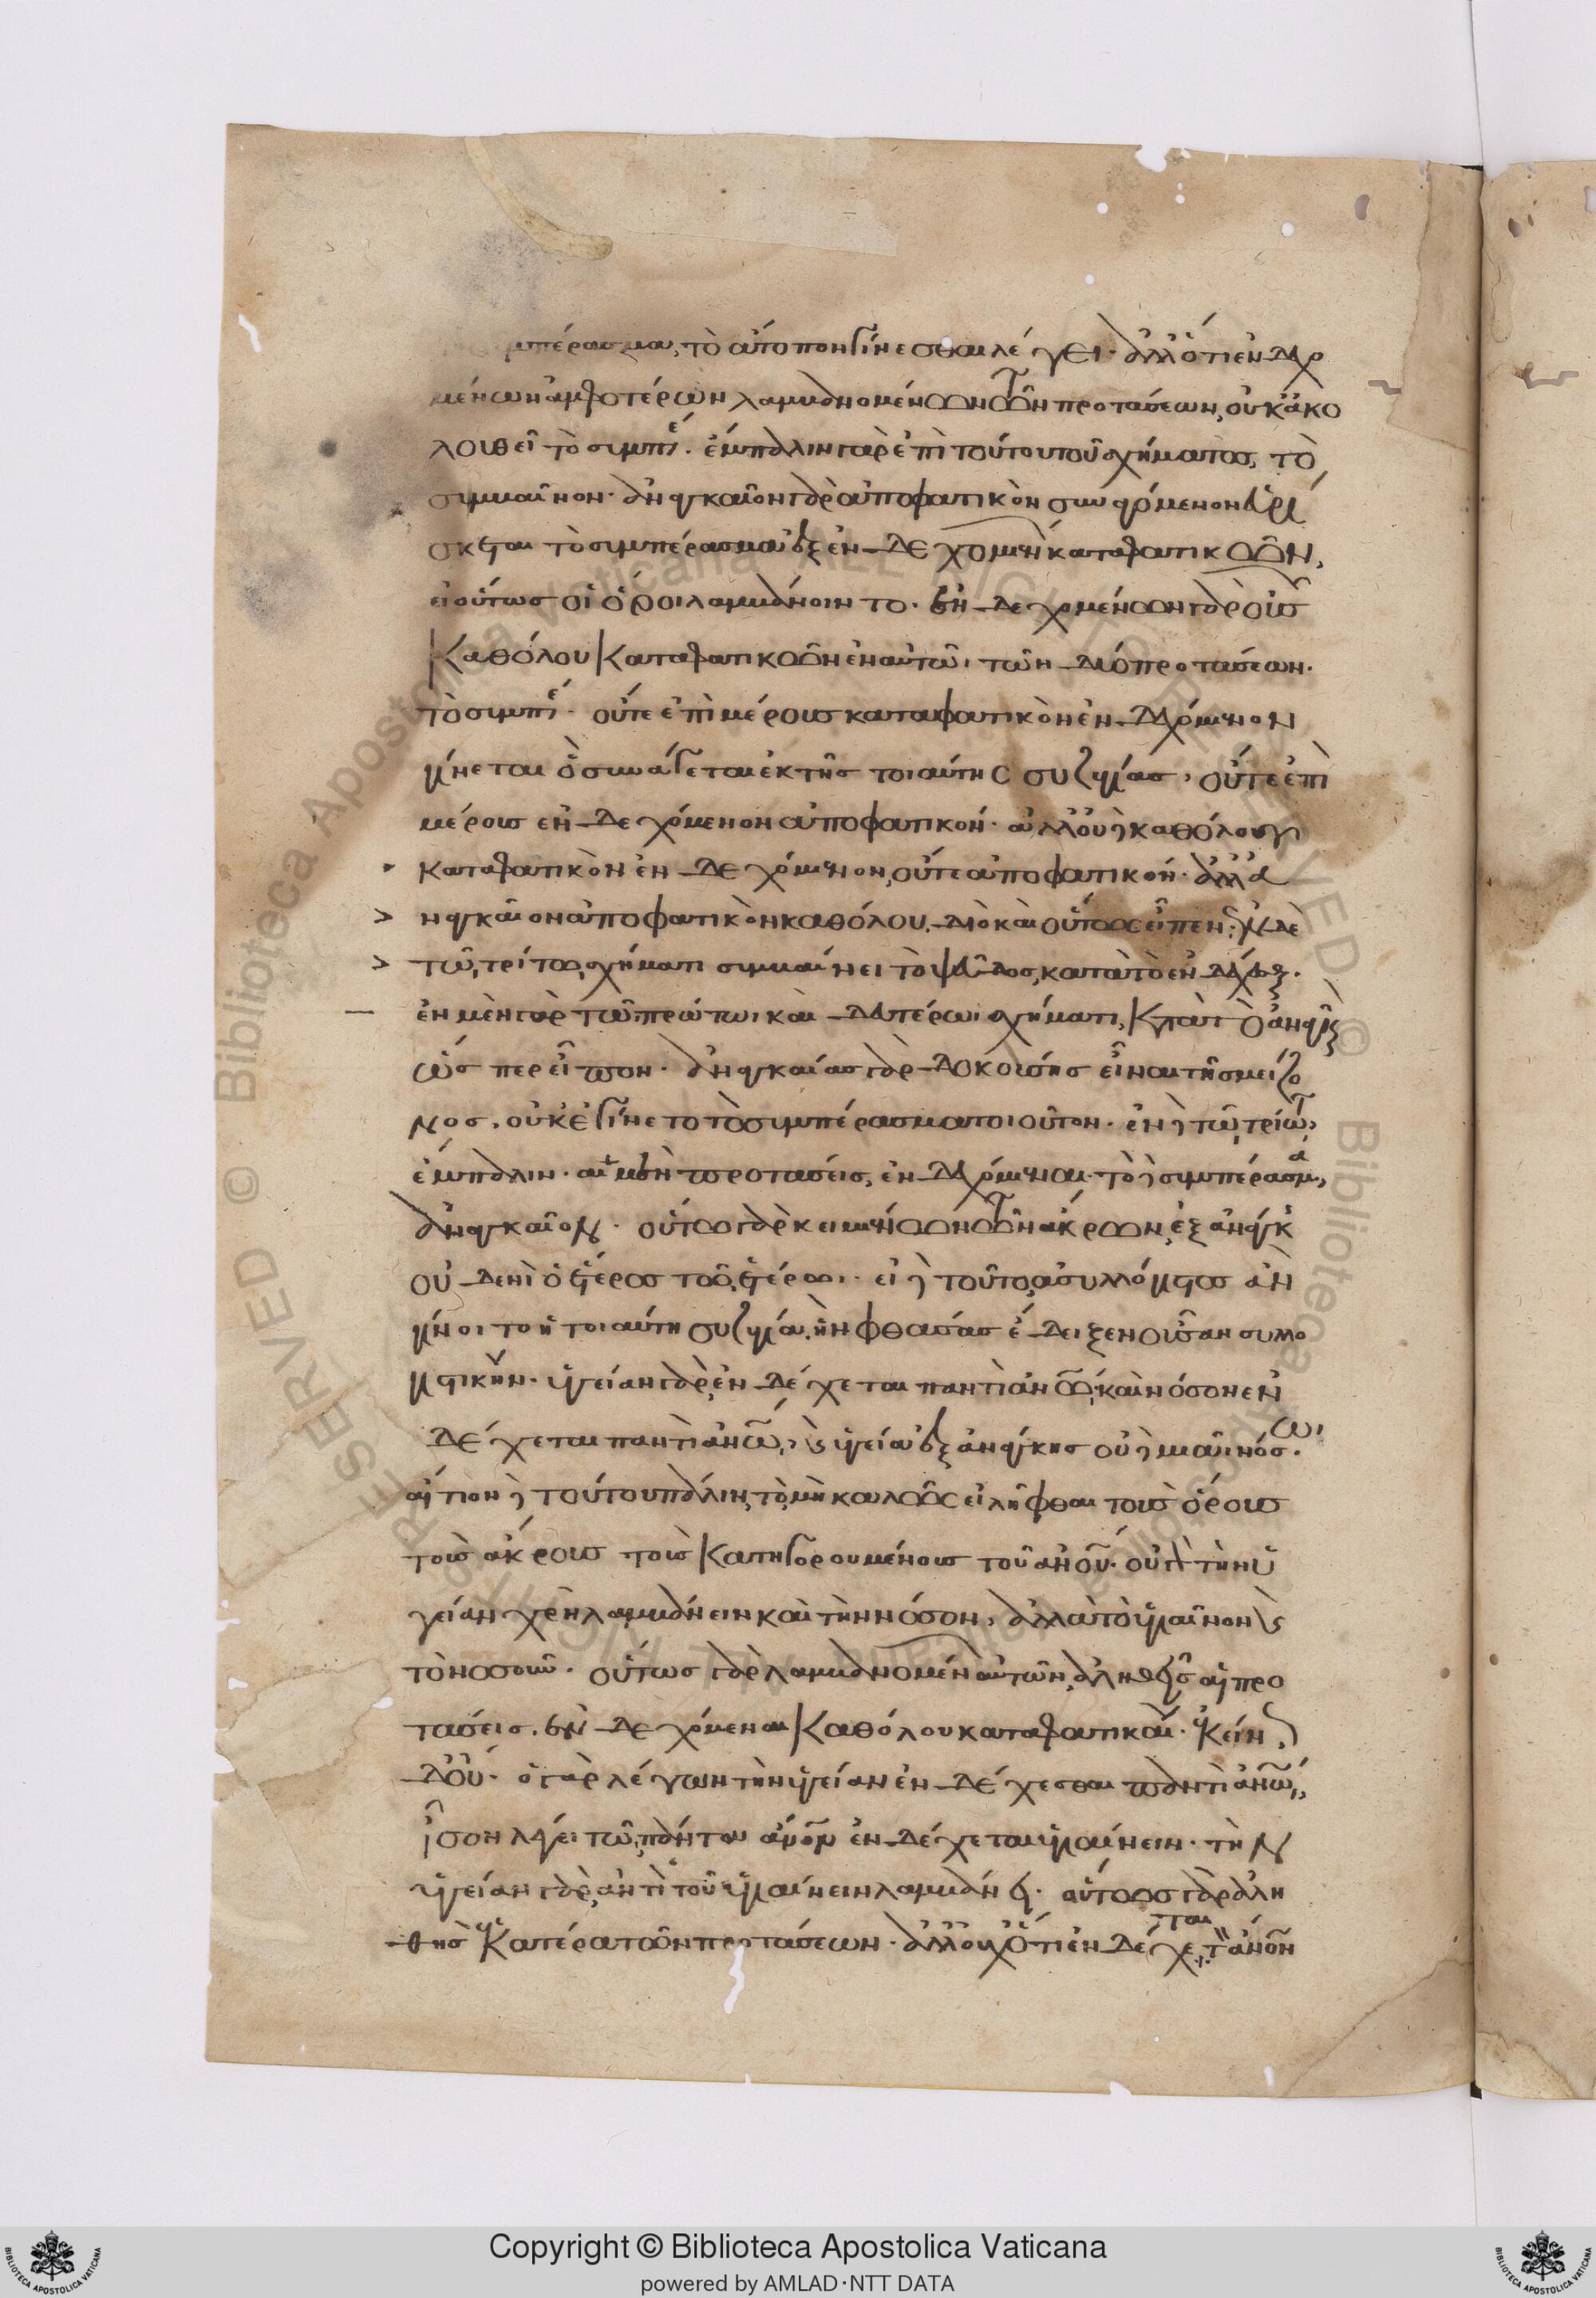 συμπέρασμα, τὸ ἄτοπον γίνεσθαι λέγει· ἀλλ' ὅτι ἐνδεχο
μένων ἀμφοτέρων λαμβανομένων τῶν προτάσεων, οὐκ ἀκο
λουθεῖ τὸ συμπέ. ἔμπαλιν γὰρ ἐπὶ τούτου τοῦ σχήματος, τὸ
συμβαῖνον· ἀναγκαῖον γὰρ ἀποφατικὸν συναγόμενον εὑρί
σκεται τὸ συμπέρασμα ἐξ ἐνδεχομένων καταφατικῶν,
εἰ οὕτως οἱ ὅροι λαμβάνοιντο. ἐνδεχομένων γὰρ οὐσῶν
καθόλου καταφατικῶν ἐν αὐτῶι τῶν δύο προτάσεων.
τὸ συμπέ. οὔτε ἐπὶ μέρους καταφατικὸν ἐνδεχόμενον
γίνεται ὃ συνάγεται ἐκ τῆς τοιαύτης συζυγίας, οὔτε ἐπὶ
μέρους ἐνδεχόμενον ἀποφατικόν· ἀλλ' οὐδὲ καθόλου
καταφατικὸν ἐνδεχόμενον, οὔτε ἀποφατικόν· ἀλλὰ ἀ
ναγκαῖον ἀποφατικὸν καθόλου. διὸ καὶ οὕτως εἶπεν· ἐν δὲ
τῶι τρίτωι σχήματι συμβαίνει τὸ ψεῦδος, κατὰ τὸ ἐνδέχεσθ.
ἐν μὲν γὰρ τῶι πρώτωι καὶ δευτέρωι σχήματι, κατὰ τὸ ἀναγκ
ὡς περ εἶπον· ἀναγκαίας γὰρ δοκούσης εἶναι τῆς μείζο
νος, οὐκ ἐγίνετο τὸ συμπέρασμα τοιοῦτον· ἐν δὲ τῶι τρίτωι,
ἔμπαλιν· αἱ μὲν προτάσεις, ἐνδεχόμεναι· τὸ δὲ συμπέρασμα,
ἀναγκαῖον. οὕτω γὰρ κειμένων τῶν ἄκρων, ἐξ ἀνάγκ
οὐδενὶ ὁ ἕτερος τῶι ἑτέρωι. εἰ δὲ τοῦτο, ἀσυλλόγιστος ἂν
γίνοιτο ἡ τοιαύτη συζυγία, ἣν φθάσας ἔδειξεν οὖσαν συλλο
γιστικήν. ὑγείαν γὰρ, ἐνδέχεται παντὶ ἀνω, καὶ νόσον ἐν
δέχεται παντὶ ἀνω, καὶ ὑγεία ἐξ ἀνάγκης οὐδεμιᾶι νόσωι.
αἴτιον δὲ τούτου πάλιν, τὸ μὴ καλῶς εἰλῆφθαι τοὺς ὅρους
τοὺς ἄκρους τοὺς κατηγορουμένους τοῦ ἀνου. οὔτε τὴν ὑ
γείαν χρὴ λαμβάνειν καὶ τὴν νόσον, ἀλλὰ τὸ ὑγιαῖνον καὶ
τὸ νοσοῦν. οὕτως γὰρ λαμβανομένων αὐτῶν, ἀληθεῖς αἱ προ
τάσεις, ἐνδεχόμεναι καθόλου καταφατικαί. ἐκείν
δ' οὔ. ὁ γὰρ λέγων τὴν ὑγείαν ἐνδέχεσθαι παντὶ ἀνω,
ἴσον λέγει τῶι πάντα ἄνον ἐνδέχεται ὑγιαίνειν. τὴν
ὑγείαν γὰρ, ἀντὶ τοῦ ὑγιαίνειν λαμβάνει. οὕτως γὰρ ἀλη
θὴς ἑκατέρα τῶν προτάσεων. ἀλλ' οὐχ ὅτι ἐνδέχεται τὸν ἄνον